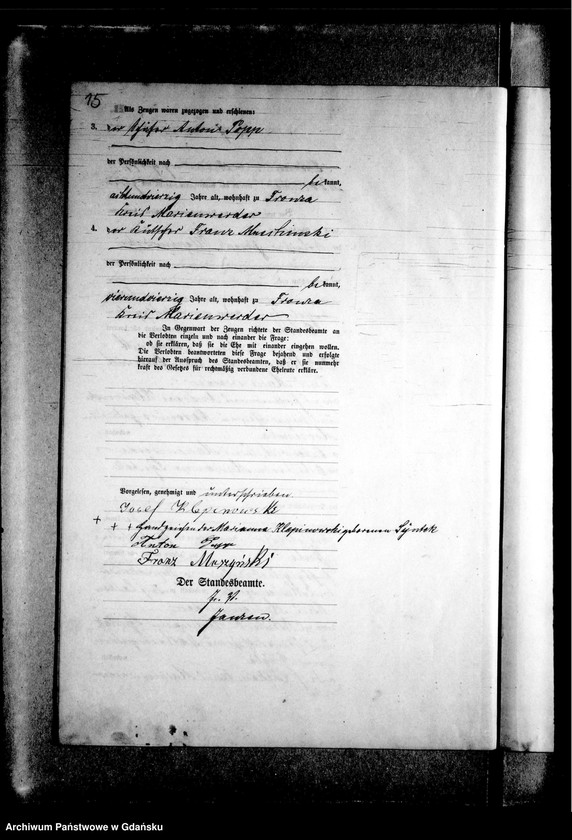 15
Als Zeugen waren zugezogen und erschienen:
3. der Schäfer Anton Popp
der Persönlichkeit nach
be kannt,
achtundvierzig Jahre alt, wohnhaft zu Fronza
Kreis Marienwerder
4. der Kutscher Franz
der Persönlichkeit nach
be kannt,
vierundvierzig Jahre alt, wohnhaft zu Fronza
Kreis Marienwerder
In Gegenwart der Zeugen richtete der Standesbeamte an
die Verlobten einzeln und nach einander die Frage:
ob sie erklären, daß sie die Ehe mit einander eingehen wollen.
Die Verlobten beantworteten diese Frage bejahend und erfolgte
hierauf der Ausspruch des Standesbeamten, daß er sie nunmehr
kraft des Gesetzes für rechtmäßig verbundene Eheleute erkläre.
Vorgelesen, genehmigt und unterschrieben
Josef Klapinowski
+ + + Handzeichen der Marianna Klapinowski geborenen
Anton
Franz Muszyński
Der Standesbeamte.
J. V.
Jansen.
Archiwum Państwowe w Gdańsku